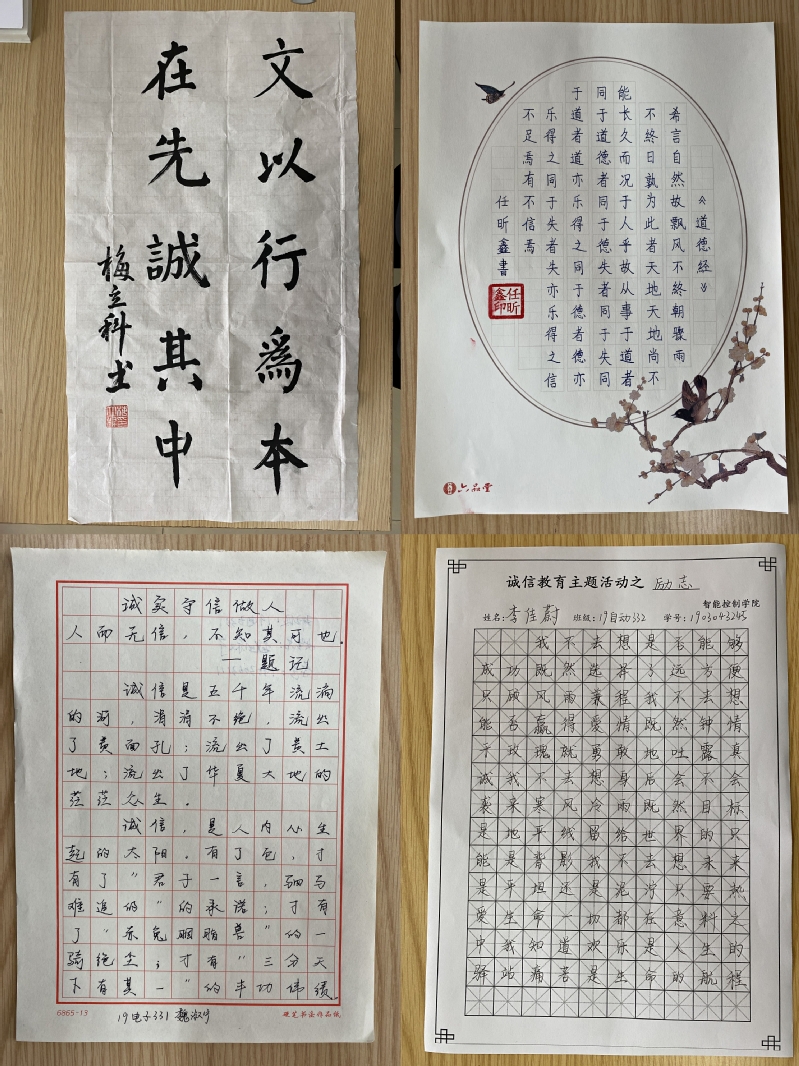 文以行爲本
在先誠其中
梅立科书
《道德经》
希言自然故飘风不终朝骤雨
不终日孰为此者天地天地尚不
能长久而况于人乎故从事于道者
同于道德者同于德失者同于失同
于道者道亦乐得之同于德者德亦
乐得之同于失者失亦乐得之信
不足焉有不信焉
任昕鑫書
任昕鑫印
六品堂
诚实守信做人
人而无信，不知其可也.
——题记
诚信是五千年流淌
的河，涓涓不绝，流出
了黄面孔；流出了黄土
地；流出了华夏大地的
茫茫众生.
诚信，是人内心生
起的太阳.有了它，才
有了"君子一言，驷马
难追的"的承诺；才有
了"赤兔胭脂兽"的一
骑绝尘；才有"三分天
下有其一"的丰功伟绩.
6865-13
硬笔书法作品纸
19电子331 魏
诚信教育主题活动之 励志
智能控制学院
姓名:李佳蔚 班级:19自动332 学号:1903043245
我不去想是否能够
成功既然选择了远方便
只顾风雨兼程我不去想
能否赢得爱情既然钟情
于玫瑰就勇敢地吐露真
诚我不去想身后会不会
袭来寒风冷雨既然目标
是地平线留给世界的只
能是背影我不去想未来
是平坦还是泥泞只要热
爱生命一切都在意料之
中我知道欢乐是人生的
驿站痛苦是生命的航程